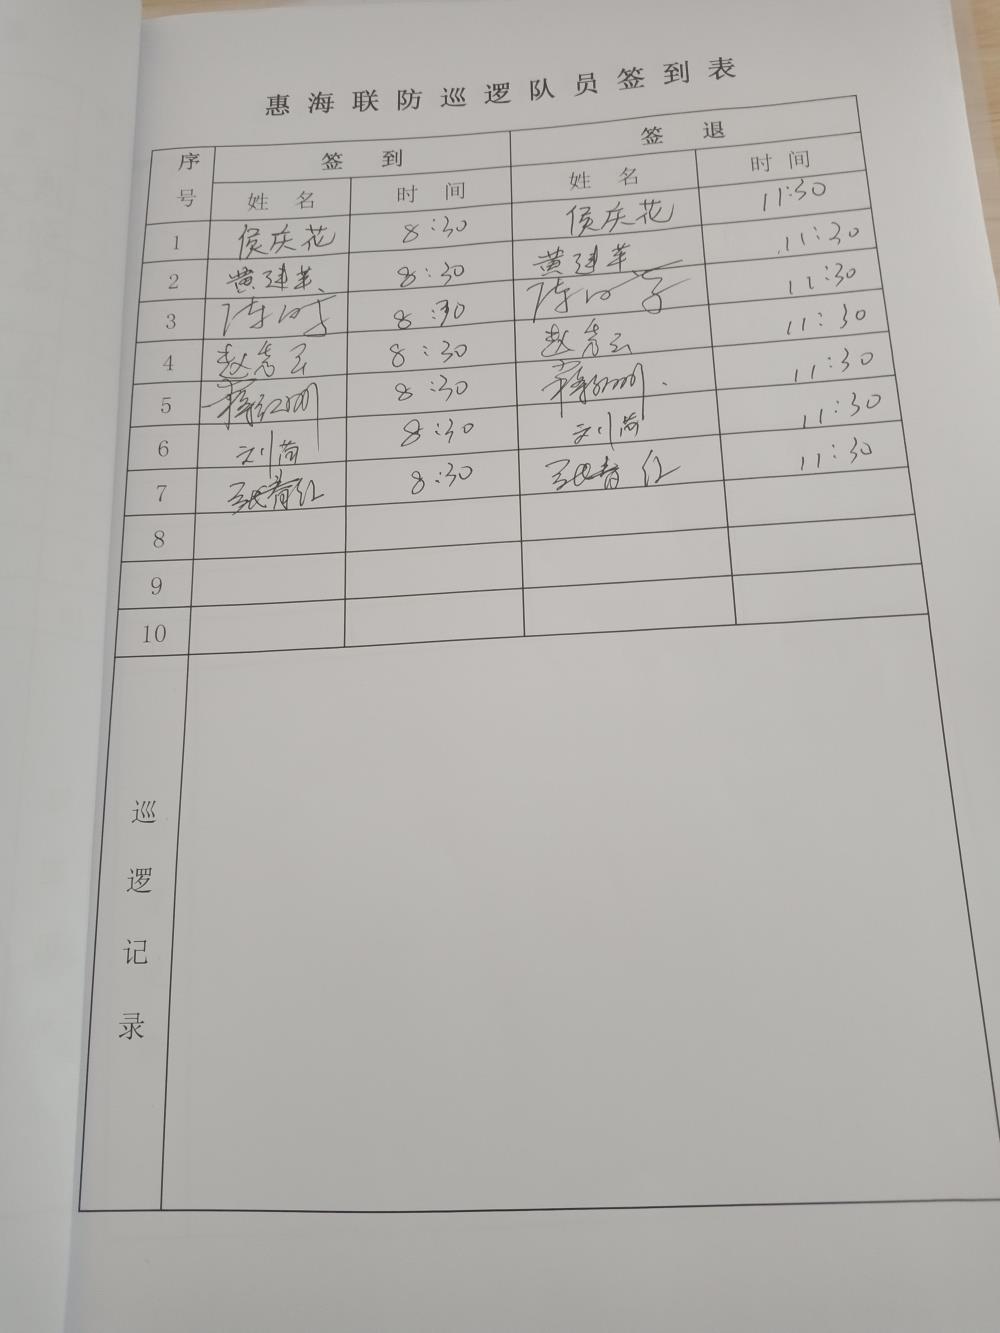 惠海联防巡逻队员签到表
序号 签到 签退
姓名 时间 姓名 时间
1 侯庆花 8:30 侯庆花 11:30
2 黄建苹 8:30 黄建苹 11:30
3 8:30 11:30
4 赵秀云 8:30 赵秀云 11:30
5 8:30 11:30
6 刘菊 8:30 刘菊 11:30
7 张春红 8:30 张春红 11:30
8
9
10
巡逻记录